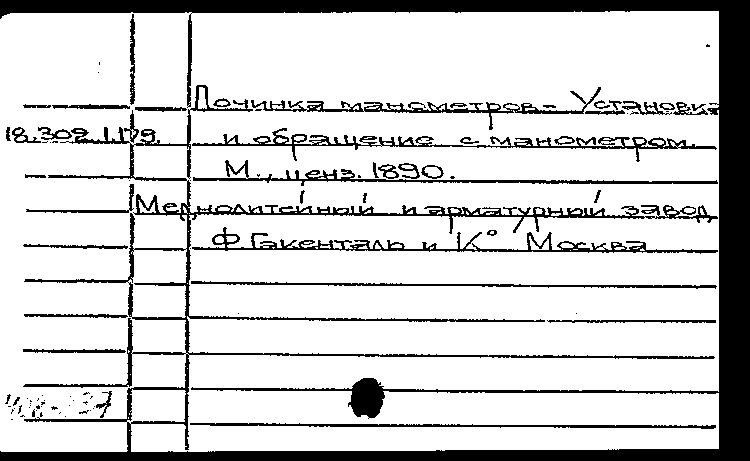 Починка манометров.- Установка
18.302.1.179. и обращение с манометром.
М., ценз. 1890.
Меднолитейный и арматурный завод
Ф. Гакенталь и К° Москва